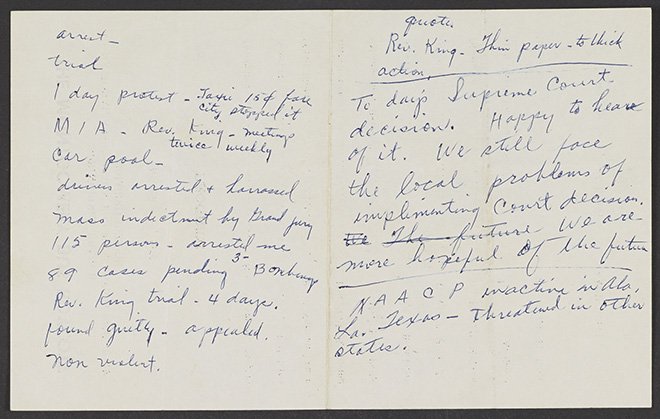 arrest -
trial
1 day protest - Taxie 15¢ fare
city stopped it
M I A - Rev. King - meetings
twice weekly
Car pool -
drivers arrested & harrassed
Mass indictment by Grand jury
115 persons - arrested me
89 cases pending 3- Bombings
Rev. King trial - 4 days.
found guilty - appealed.
Non violent.
quote
Rev. King - Thin paper - to thick
action
To day's Supreme Court
decision. Happy to hear
of it. We still face
the local problems of
implimenting Court decision.
We The future We are
more hopeful of the future
N A A C P inactive in Ala,
La. Texas - Threatened in other
states.